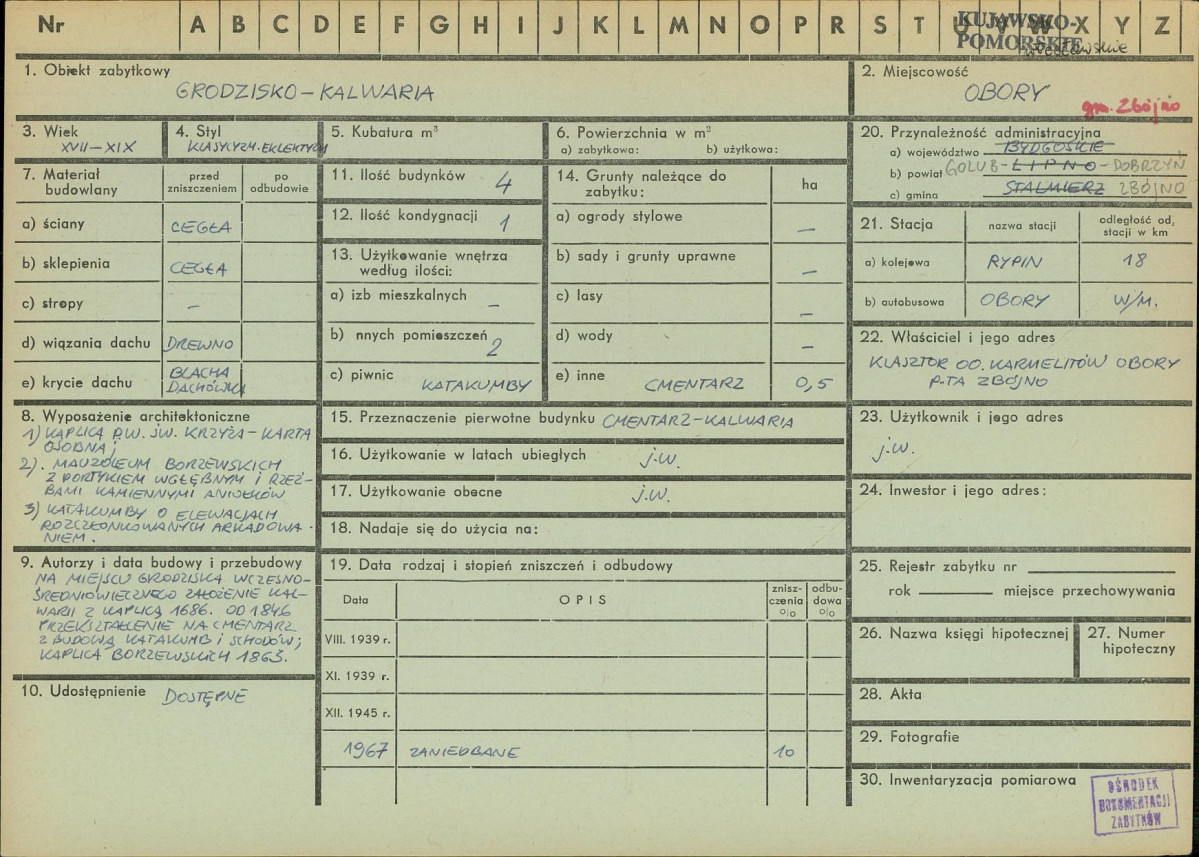 Nr A B C D E F G H I J K L M N O P R S T U V W X Y Z
KUJAWSKO-
POMORSKIE
1. Obiekt zabytkowy
GRODZISKO – KALWARIA
2. Miejscowość
OBORY
gm. Zbójno
3. Wiek
XVII – XIX
4. Styl
KLASYCYZM-EKLEKTYZM
5. Kubatura m³
6. Powierzchnia w m²
a) zabytkowa: b) użytkowa:
20. Przynależność administracyjna
a) województwo BYDGOSKIE
b) powiat GOLUB-LIPNO-DOBRZYŃ
c) gmina STALMIERZ ZBÓJNO
7. Materiał budowlany
przed zniszczeniem
po odbudowie
a) ściany CEGŁA
b) sklepienia CEGŁA
c) stropy –
d) wiązania dachu DREWNO
e) krycie dachu BLACHA
DACHÓWKA
11. Ilość budynków 4
12. Ilość kondygnacji 1
13. Użytkowanie wnętrza
według ilości:
a) izb mieszkalnych –
b) nnych pomieszczeń 2
c) piwnic KATAKUMBY
14. Grunty należące do
zabytku: ha
a) ogrody stylowe –
b) sady i grunty uprawne –
c) lasy –
d) wody –
e) inne CMENTARZ 0,5
21. Stacja
nazwa stacji
odległość od,
stacji w km
a) kolejowa RYPIN 18
b) autobusowa OBORY W/M.
22. Właściciel i jego adres
KLASZTOR OO. KARMELITÓW OBORY
P-TA ZBÓJNO
8. Wyposażenie architektoniczne
1) KAPLICA P.W. ŚW. KRZYŻA – KARTA
OSOBNA;
2). MAUZOLEUM BORZEWSKICH
Z PORTYKIEM WGŁĘBNYM I RZEŹ-
BAMI KAMIENNYMI ANIOŁKÓW
3) KATAKUMBY O ELEWACJACH
ROZCZŁONKOWANYCH ARKADOWA-
NIEM.
15. Przeznaczenie pierwotne budynku CMENTARZ – KALWARIA
16. Użytkowanie w latach ubiegłych j.w.
17. Użytkowanie obecne j.w.
18. Nadaje się do użycia na:
23. Użytkownik i jego adres
j.w.
24. Inwestor i jego adres:
9. Autorzy i data budowy i przebudowy
NA MIEJSCU GRODZISKA WCZESNO-
ŚREDNIOWIECZNEGO ZAŁOŻENIE KAL-
WARII Z KAPLICĄ 1686. OD 1846
PRZEKSZTAŁCENIE NA CMENTARZ
Z BUDOWĄ KATAKUMB I SCHODÓW;
KAPLICA BORZEWSKICH 1863.
10. Udostępnienie DOSTĘPNE
19. Data rodzaj i stopień zniszczeń i odbudowy
Data
OPIS
znisz-
czenia
%
odbu-
dowa
%
VIII. 1939 r.
XI. 1939 r.
XII. 1945 r.
1967 ZANIEDBANE 10
25. Rejestr zabytku nr
rok miejsce przechowywania
26. Nazwa księgi hipotecznej
27. Numer
hipoteczny
28. Akta
29. Fotografie
30. Inwentaryzacja pomiarowa
OŚRODEK
DOKUMENTACJI
ZABYTKÓW